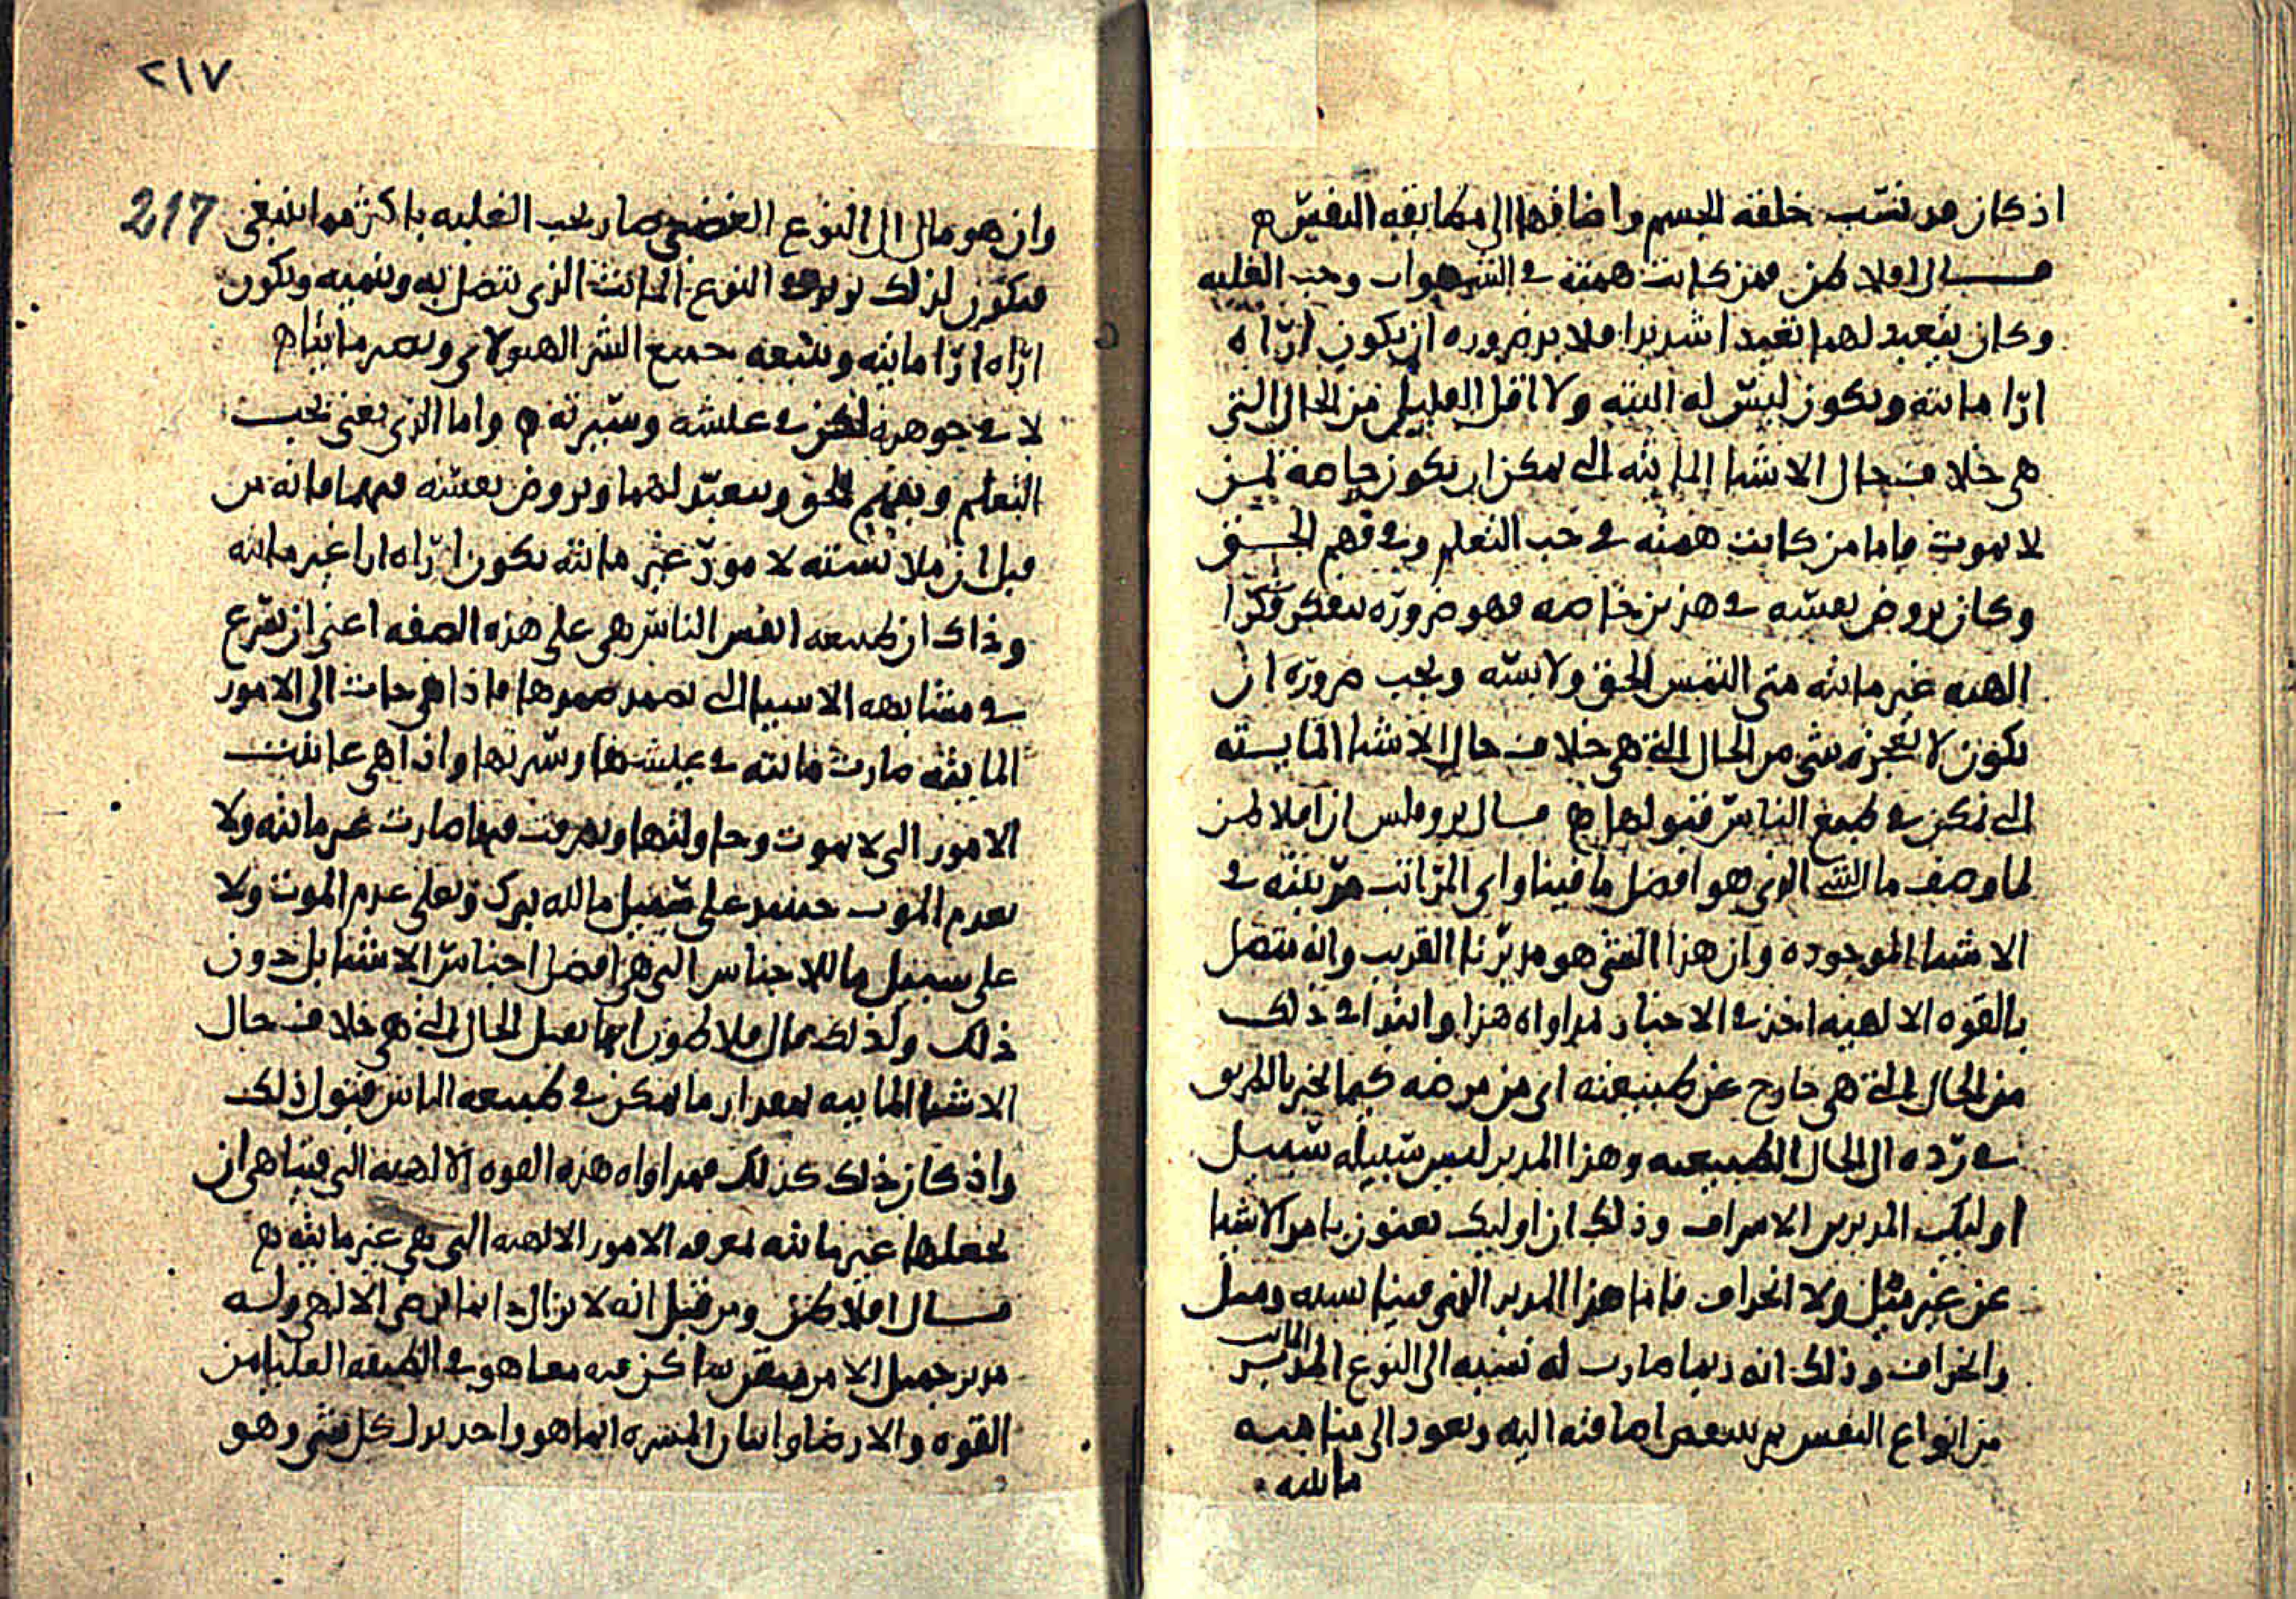 اذ كان قد نسب خلقة الجسم واضافها الى مطابقة النفس ه
قال افلاطن فمن كانت همته في الشهوات وحب الغلبه
وكان يتعبد لهما تعبدا شديدا فلا بد ضروره ان يكون اراه
ارا مائته ويكون ليس له البته ولا اقل القليل من الحال التي
هي خلاف حال الاشيا المايته التي يمكن ان يكون خاصة لمن
لا يموت فاما من كانت همته في حب التعلم وفي فهم الحق
وكان يروض نفسه في هذين خاصه فهو ضرورة يتفكر فكرا
الهيه غير مائته متى التمس الحق ولابسه ويجب ضرورة ان
يكون لا يعجزه شي من الحال التي هي خلاف حال الاشيا المايته
التي يمكن في طبع الناس قبولها ه قال بروقلس ان افلاطن
لما وصف ما الشي الذي هو افضل ما فينا واي المراتب مرتبته في
الاشيا الموجوده وان هذا الشي هو مدبرنا القريب وانه متصل
بالقوه الالهيه اخذ في الاخبار بمداواه هذا وابتدا في ذلك
من الحال التي هي خارج عن طبيعته اي من مرضه كيما نخبر بالطريق
في رده الى الحال الطبيعيه وهذا المدبر ليس سبيله سبيل
اوليك المدبرين الاشراف وذلك ان اوليك يعنون بامر الاشيا
عن غير ميل ولا انحراف فاما هذا المدبر الذي فينا نسبه وميل
وانحراف وذلك انه ربما صارت له نسبه الى النوع المائت
من انواع النفس ويعود الى
مائته
٢١٧
217
وان هو مال الى النوع الغضبي صار يحب الغلبه باكثر مما ينبغي
فيكون لذلك النوع المائت الذي يتصل به وينميه ويكون
اراه ارا مائته ويتبعه جميع الشر الهيولاني ويصير مائتا ه
لا في جوهره لكن في عيشه وسيرته ه واما الذي يعنى بحب
التعلم وبفهم الحق ويتعبد لهما ويروض نفسه فيهما فانه من
قبل ان ملابسته لامور غير مائته يكون اراه ارا غير مائته
وذاك ان طبيعه انفس الناس هي على هذه الصفه اعني ان تسرع
في مشابهه الاشيا التي تصمد صمدها فاذا هي جات الى الامور
المايته صارت مائته في عيشها وسيرتها واذا هي عاينت
الامور التي لا تموت وحاولتها وتصرفت فيها صارت غير مائته ولا
بعدم الموت حينئذ على سبيل ما لله تبرك وتعلى عدم الموت ولا
على سبيل ما للاجناس التي هي افضل اجناس الاشيا بل دون
ذلك ولذلك قال فلاطون انها تقبل الحال التي هي خلاف حال
الاشيا المايته بمقدار ما يمكن في طبيعه الناس قبول ذلك
واذ كان ذلك كذلك فمداواه هذه القوه الالهيه التي فينا هي ان
نجعلها غير مائته بمعرفه الامور الالهيه التي هي غير مائته ه
قال افلاطن ومن قبل انه لا يزال دائما يرضي الالهي وله
مدبر جميل الامر ساكن فيه معما هو في الطبقه العليا من
القوه والارضا انما هو واحد لكل شي وهو